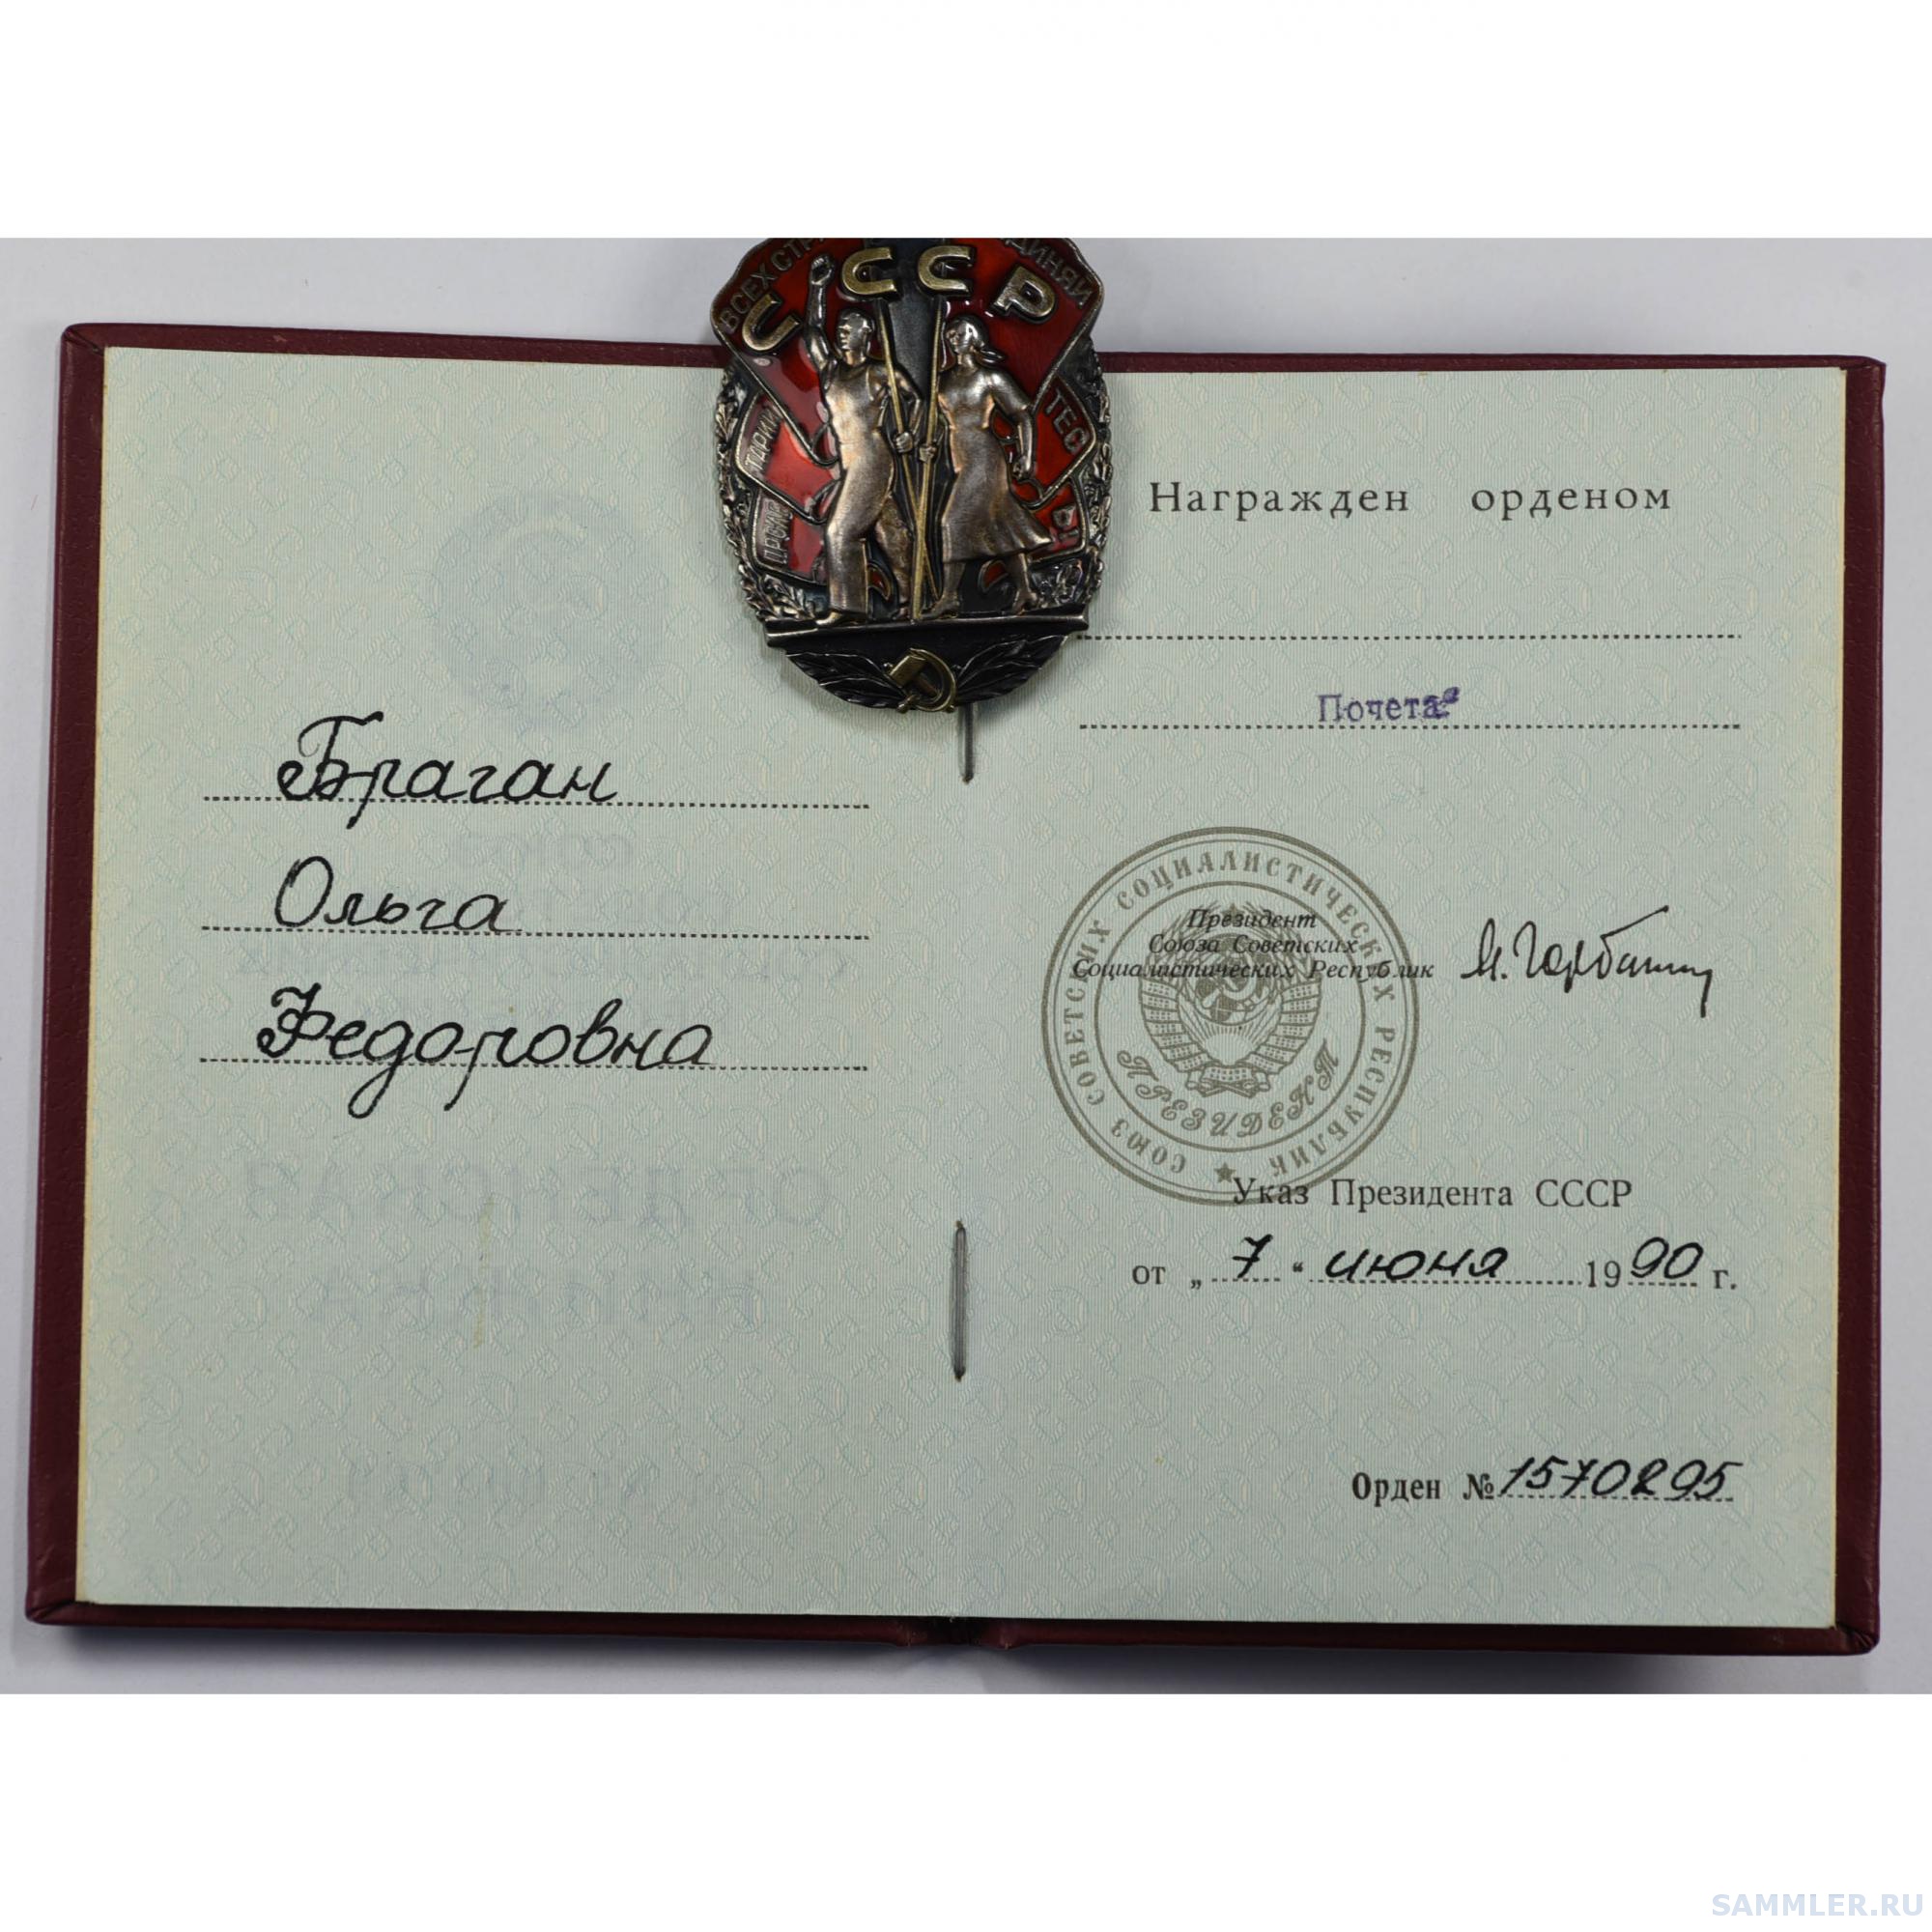 ВСЕХ СТР
ДИНЯЙ
СССР
ТАРИИ
ТЕС
ПРОЛЕ
Ь!
Награжден орденом
Почета"
Браган
Ольга
Федоровна
СОЮЗ СОВЕТСКИХ СОЦИАЛИСТИЧЕСКИХ РЕСПУБЛИК
ПРЕЗИДЕНТ
Президент
Союза Советских
Социалистических Республик М. Горбачев
Указ Президента СССР
от „7“ июня 1990 г.
Орден № 1570295
SAMMLER.RU